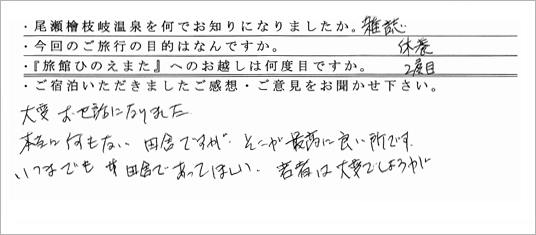 ・尾瀬檜枝岐温泉を何でお知りになりましたか。雑誌
・今回のご旅行の目的はなんですか。 休養
・『旅館ひのえまた』へのお越しは何度目ですか。 2度目
・ご宿泊いただきましたご感想・ご意見をお聞かせ下さい。
大変お世話になりました
本当に何もない田舎ですが、そこが最高に良い所です。
いつまでも田舎であってほしい。若者は大変でしょうが